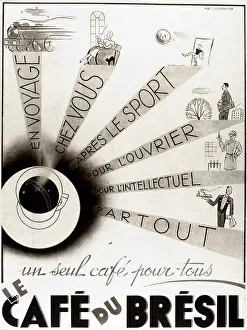 EN VOYAGE
CHEZ VOUS
APRÈS LE SPORT
POUR L'OUVRIER
POUR L'INTELLECTUEL
PARTOUT
un seul café pour tous
LE
CAFÉ DU BRÉSIL